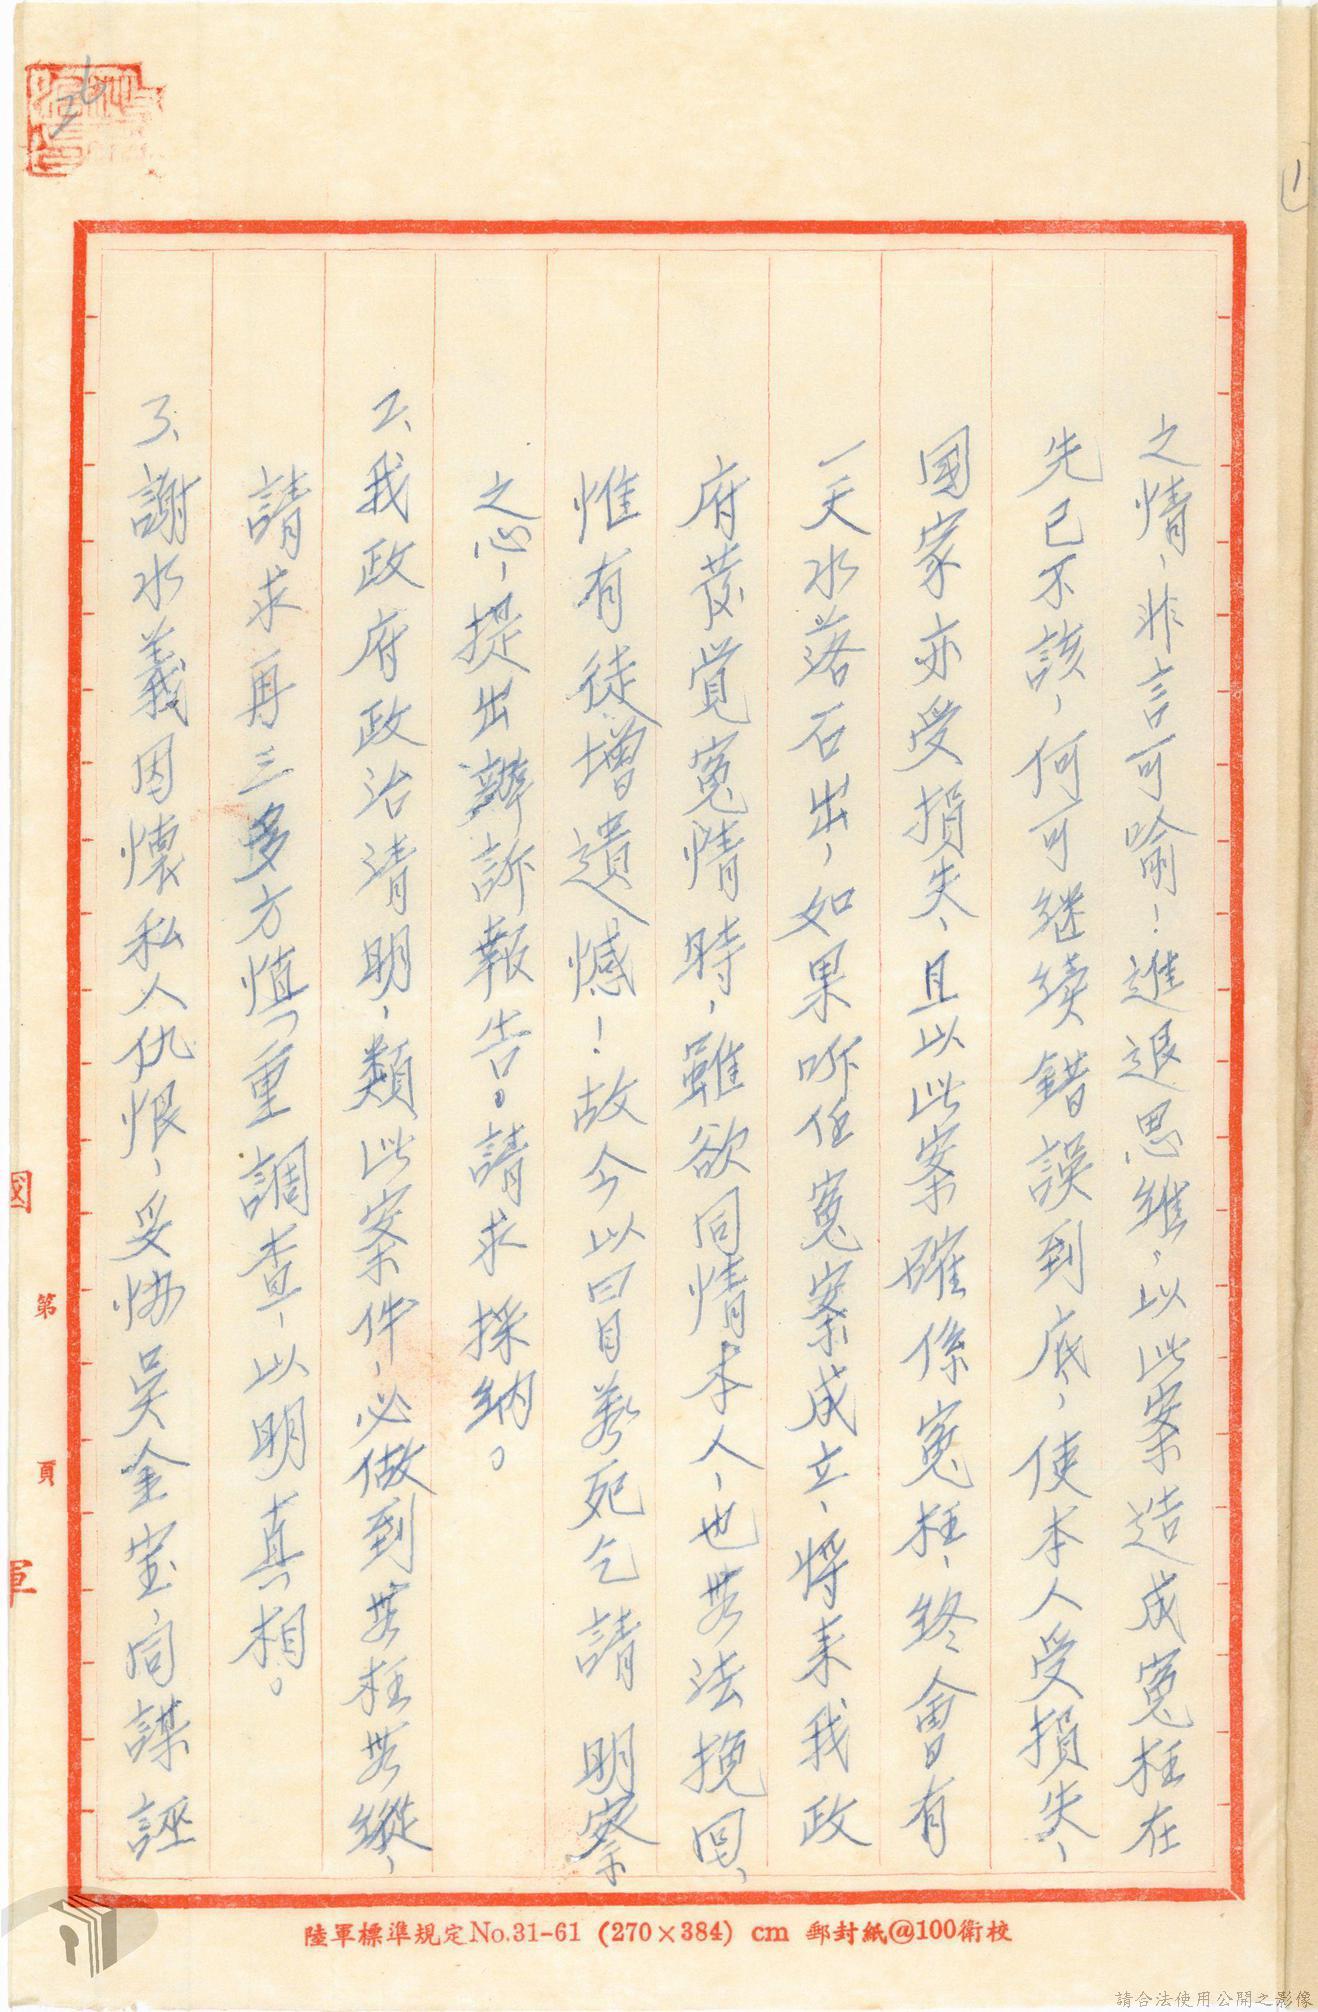 之情，非言可喻！進退思維，以此案造成冤枉在
先已不該，何可継续錯誤到底，使本人受損失、
国家亦受損失、且以此案確係冤枉，終會有
一天水落石出，如果咋任冤案成立，将来我政
府發覚冤情時，雖欲同情本人，也無法挽回，
惟有徒增遺憾！故今以冒萬死乞請 明察
之心，提出辯訴報告。請求採納。
2、我政府政治清明，類此案件，必做到無枉無縱，
請求再三多方慎重調查，以明真相。
3、謝水義因懷私人仇恨，妥协吳金宝同謀誣
國 第 頁 軍
陸軍標準規定No.31-61 (270×384) cm 郵封紙@100衛校
請合法使用公開之影像